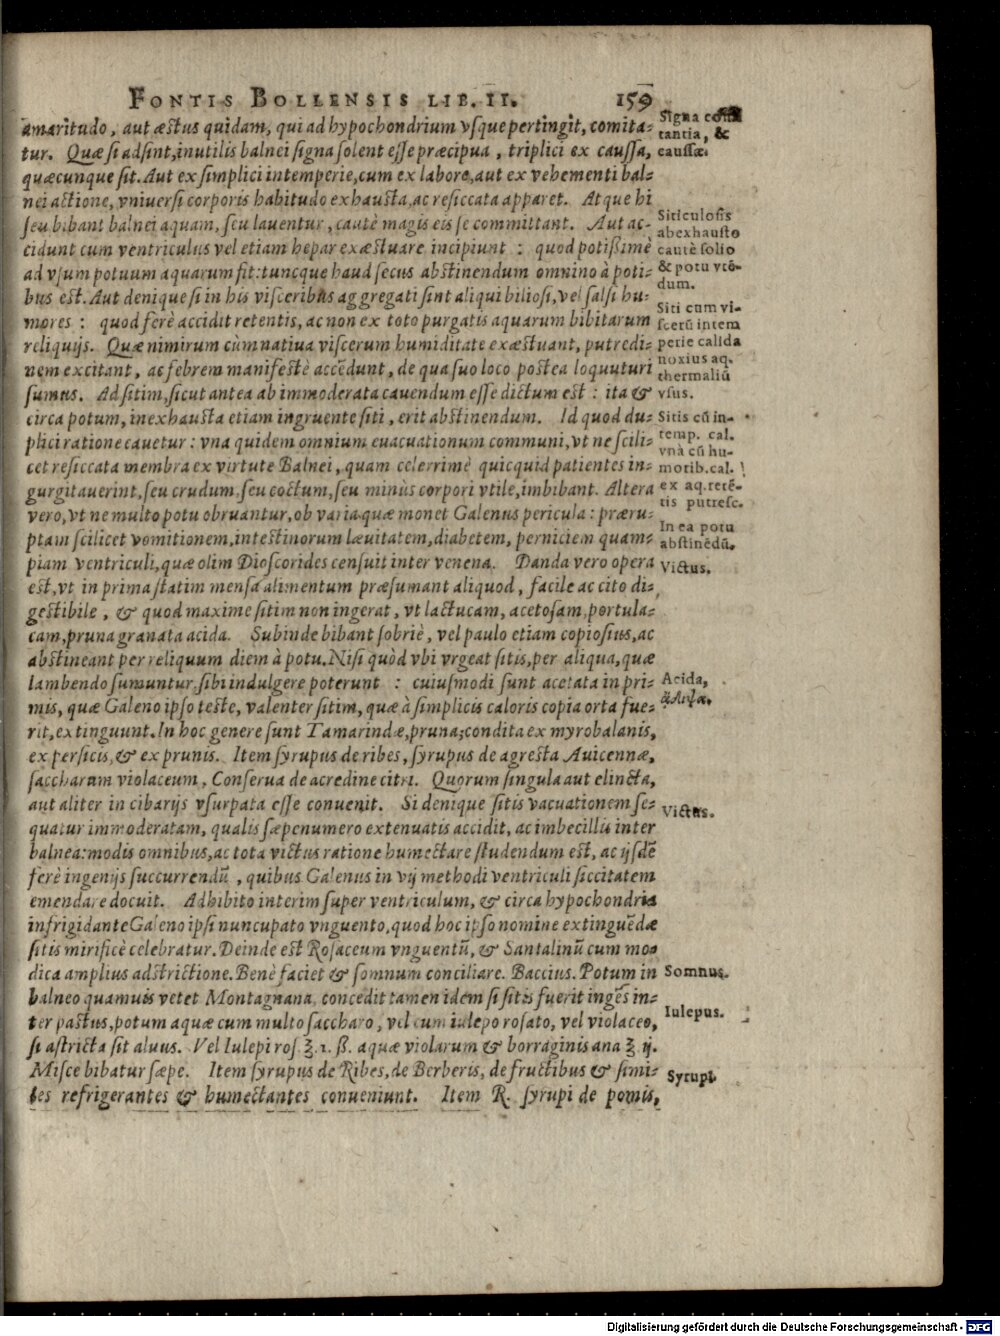 FONTIS BOLLENSIS LIB. II. 159
amaritudo, aut æstus quidam, qui ad hypochondrium vsque pertingit, comita-
tur. Quæ si adsint, inutilis balnei signa solent esse præcipua, triplici ex caussa,
quæcunque sit. Aut ex simplici intemperie, cum ex labore, aut ex vehementi bal-
nei actione, vniuersi corporis habitudo exhausta, ac resiccata apparet. Atque hi
seu bibant balnei aquam, seu lauentur, cautè magis eis se committant. Aut ac-
cidunt cum ventriculus vel etiam hepar exæstuare incipiunt: quod potißimè
ad vsum potuum aquarum fit: tuncque haud secus abstinendum omnino à poti-
bus est. Aut denique si in his visceribus aggregati sint aliqui biliosi, vel salsi hu-
mores: quod ferè accidit retentis, ac non ex toto purgatis aquarum bibitarum
reliquijs. Quæ nimirum cum natiua viscerum humiditate exæstuant, putredi-
nem excitant, ac febrem manifestè accedunt, de qua suo loco postea loquuturi
sumus. Ad sitim, sicut antea ab immoderata cauendum esse dictum est: ita &
circa potum, inexhausta etiam ingruente siti, erit abstinendum. Id quod du-
plici ratione cauetur: vna quidem omnium euacuationum communi, vt ne scili-
cet resiccata membra ex virtute Balnei, quam celerrimè quicquid patientes in-
gurgitauerint, seu crudum, seu coctum, seu minùs corpori vtile, imbibant. Altera
vero, vt ne multo potu obruantur, ob varia quæ monet Galenus pericula: præru-
ptam scilicet vomitionem, intestinorum læuitatem, diabetem, perniciem quam-
piam ventriculi, quæ olim Dioscorides censuit inter venena. Danda vero opera
est, vt in prima statim mensa alimentum præsumant aliquod, facile ac cito di-
gestibile, & quod maxime sitim non ingerat, vt lactucam, acetosam, portula-
cam, pruna granata acida. Subinde bibant sobriè, vel paulo etiam copiosius, ac
abstineant per reliquum diem à potu. Nisi quòd vbi vrgeat sitis, per aliqua, quæ
lambendo sumuntur, sibi indulgere poterunt: cuiusmodi sunt acetata in pri-
mis, quæ Galeno ipso teste, valenter sitim, quæ à simplicis caloris copia orta fue-
rit, extinguunt. In hoc genere sunt Tamarindæ, pruna; condita ex myrobalanis,
ex persicis, & ex prunis. Item syrupus de ribes, syrupus de agresta Auicennæ,
saccharum violaceum, Conserua de acredine citri. Quorum singula aut elincta,
aut aliter in cibarijs vsurpata esse conuenit. Si denique sitis vacuationem se-
quatur immoderatam, qualis sæpenumero extenuatis accidit, ac imbecillis inter
balnea: modis omnibus, ac tota victus ratione humectare studendum est, ac ijsdē
ferè ingenijs succurrendū, quibus Galenus in vij methodi ventriculi siccitatem
emendare docuit. Adhibito interim super ventriculum, & circa hypochondria
infrigidante Galeno ipsi nuncupato vnguento, quod hoc ipso nomine extinguēdæ
sitis mirificè celebratur. Deinde est Rosaceum vnguentū, & Santalinū cum mo-
dica amplius adstrictione. Benè faciet & somnum conciliare. Baccius. Potum in
balneo quamuis vetet Montagnana, concedit tamen idem si sitis fuerit ingēs in-
ter pastus, potum aquæ cum multo saccharo, vel cum iulepo rosato, vel violaceo,
si astricta sit aluus. Vel Iulepi ros. ℥. 1. ß. aquæ violarum & borraginis ana ℥. ij.
Misce bibatur sæpe. Item syrupus de Ribes, de Berberis, de fructibus & simi-
les refrigerantes & humectantes conueniunt. Item R. syrupi de pomis,
Signa
tantia, &
caussæ.
Siticulosis
ab exhausto
cautè solio
& potu vtē-
dum.
Siti cum vi-
scerū intem
perie calida
noxius aq.
thermaliū
vsus.
Sitis cū in-
temp. cal.
vnà cū hu-
morib. cal.
ex aq. retē-
tis putresc.
In ea potu
abstinēdū.
Victus.
Acida,
Victus.
Somnus.
Iulepus.
Syrupi.
Digitalisierung gefördert durch die Deutsche Forschungsgemeinschaft - DFG